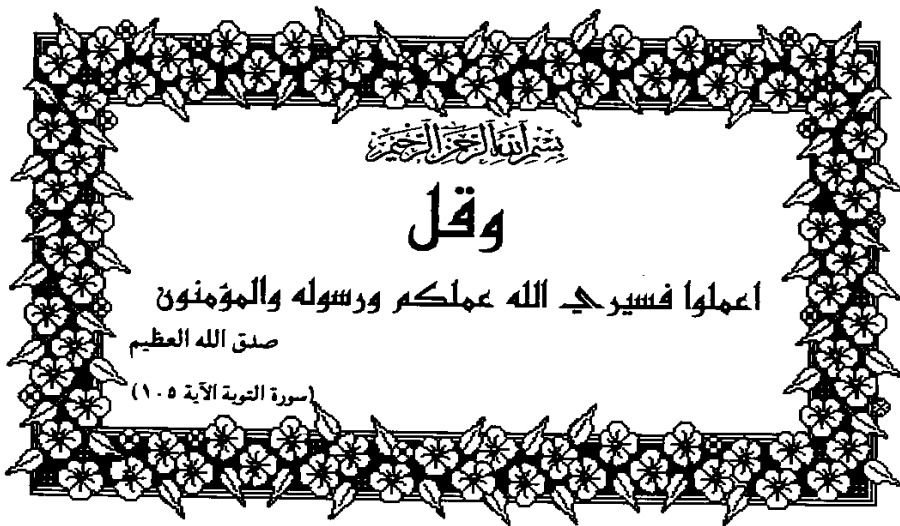 بسم الله الرحمن الرحيم
وقل
اعملوا فسيري الله عملكم ورسوله والمؤمنون
صدق الله العظيم
(سورة التوبة الآية ١٠٥)